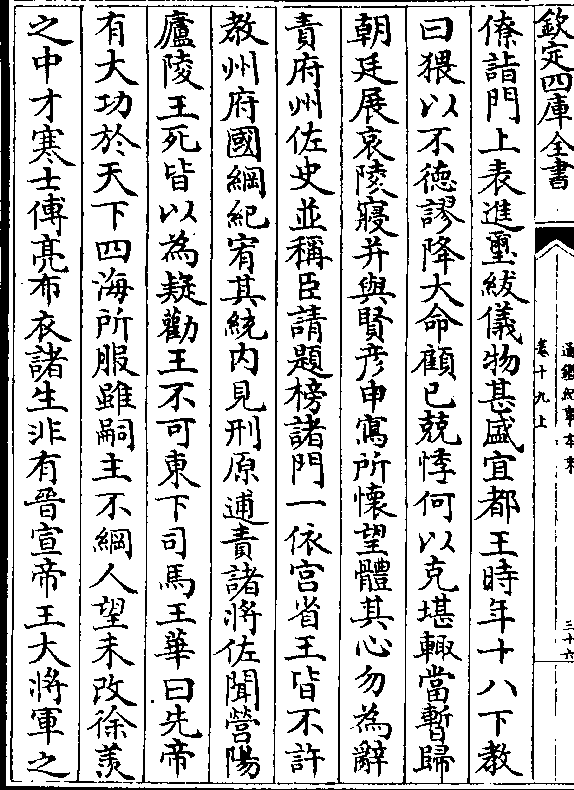 欽定四庫全書
通鑑紀事本末
卷十九上
三十六
僚詣門上表進璽紱儀物甚盛宜都王時年十八下教
曰猥以不德謬降大命顧已兢悸何以克堪輙當暫歸
朝廷展哀陵寢并與賢彦申寫所懷望體其心勿為辭
責府州佐史並稱臣請題榜諸門一依宫省王皆不許
教州府國綱紀宥其統内見刑原逋責諸將佐聞營陽
廬陵王死皆以為疑勸王不可東下司馬王華曰先帝
有大功於天下四海所服雖嗣主不綱人望未改徐羡
之中才寒士傅亮布衣諸生非有晉宣帝王大將軍之